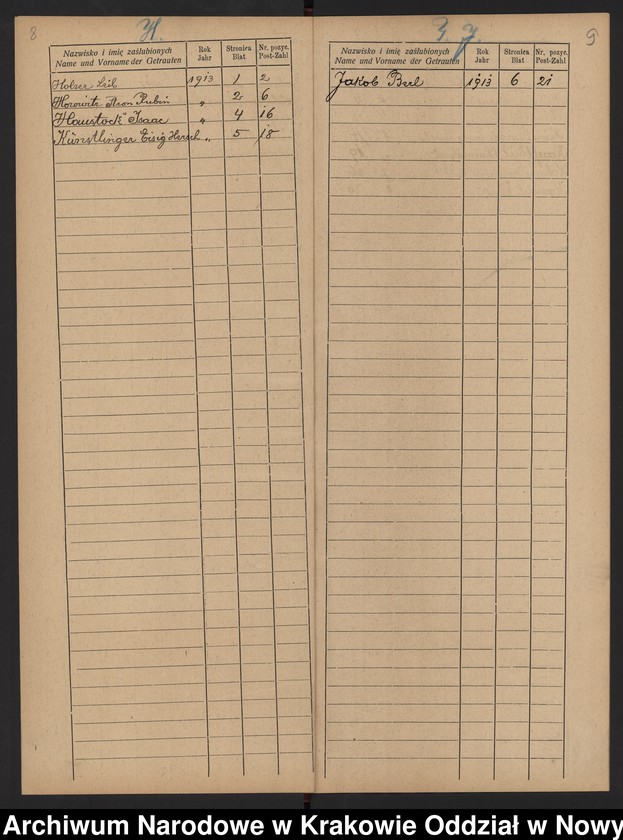 8
H.
Nazwisko i imię zaślubionych Rok Stronica Nr. pozyc.
Name und Vorname der Getrauten Jahr Blat Post-Zahl
Holzer Leib 1913 1 2
Horowitz Aron Rubin „ 2 6
Haustock Isaac „ 4 16
Künstlinger Eisig Hersch „ 5 18
I. J.
9
Nazwisko i imię zaślubionych Rok Stronica Nr. pozyc.
Name und Vorname der Getrauten Jahr Blat Post-Zahl
Jakob Berl 1913 6 21
Archiwum Narodowe w Krakowie Oddział w Nowy